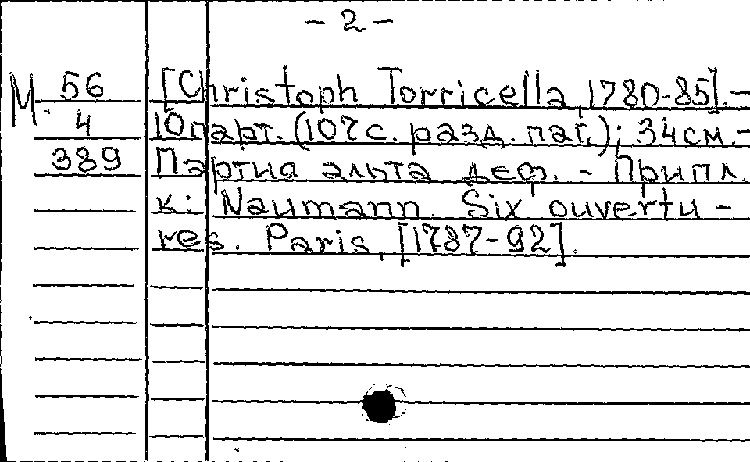 - 2 -
М. 56 [Christoph Torricella, 1780-85].-
4 10 парт. (107 с. разд. паг.); 34 см.-
389 Партия альта деф. - Припл.
к: Naumann. Six ouvertu-
res. Paris, [1787-92].